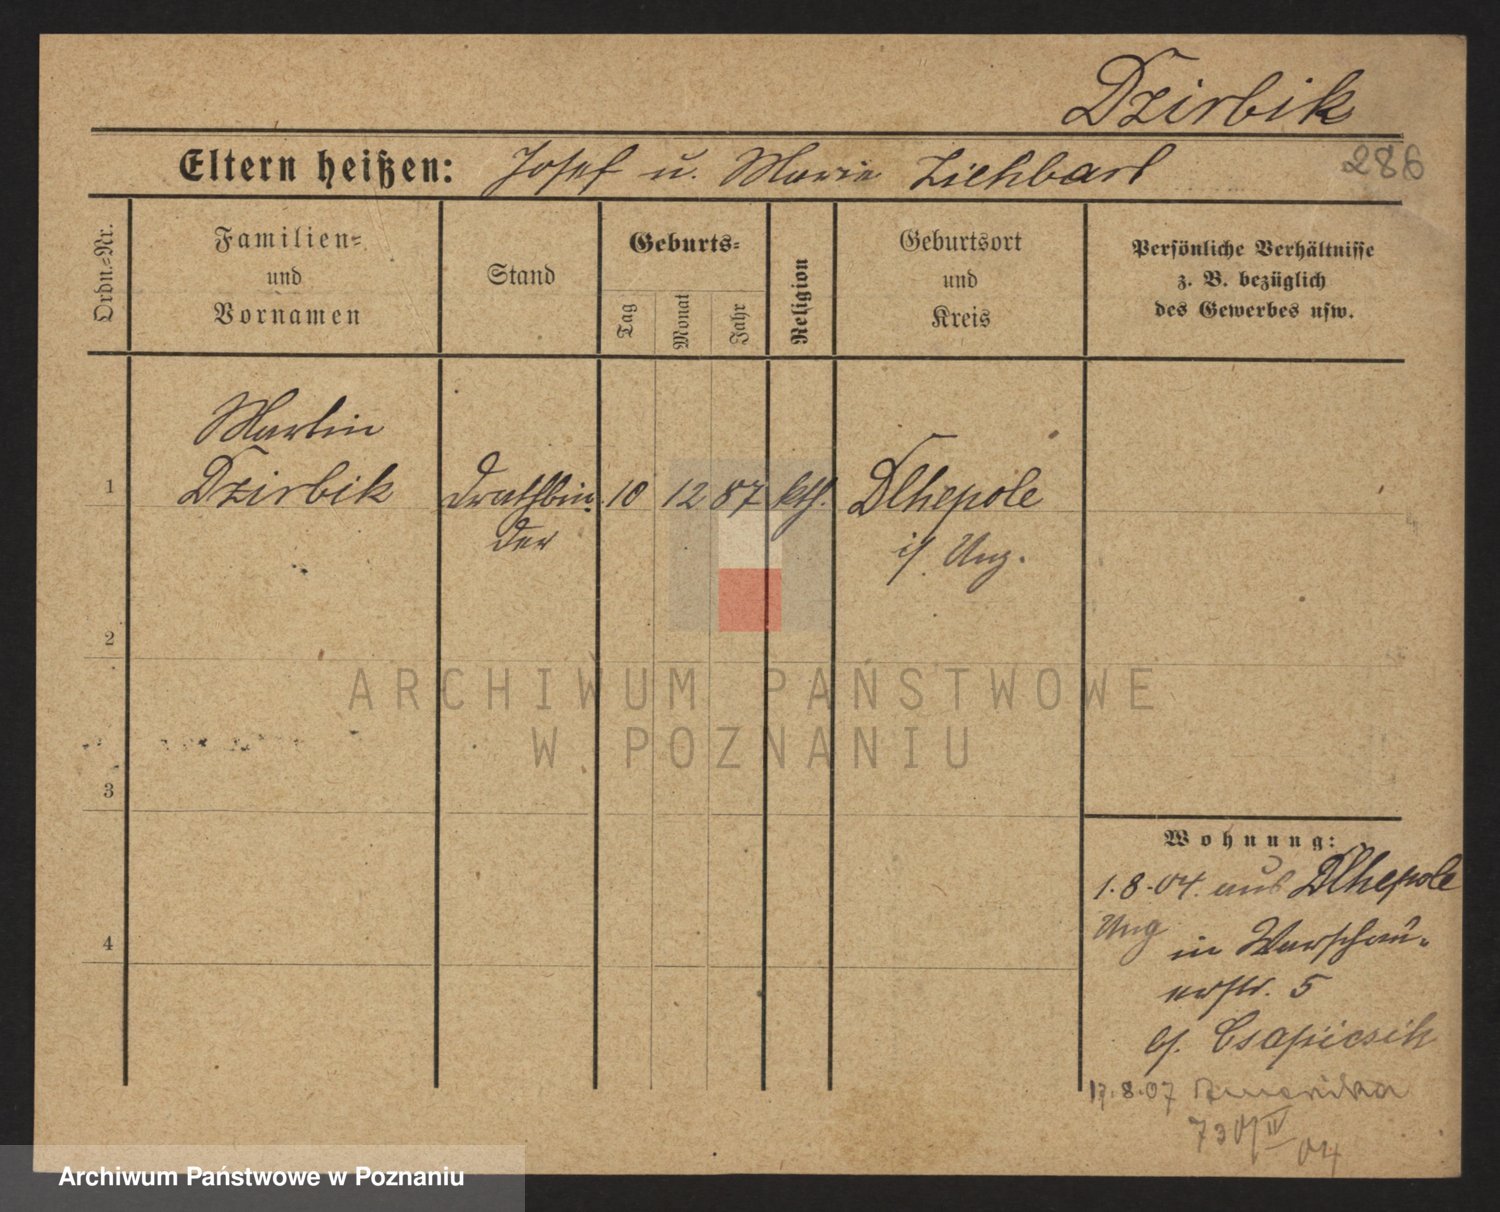 Dzirbik
Eltern heißen: Josef u. Marie Lichbarl
286
Ordn.-Nr.
Familien- und Vornamen
Stand
Geburts-
Tag
Monat
Jahr
Religion
Geburtsort und Kreis
Persönliche Verhältnisse
z. B. bezüglich
des Gewerbes usw.
Martin
1 Dzirbik Drathbin- 10 12 87 kth. Dlhepole
der i/ Ung.
2
3
4
Wohnung:
1.8.04. aus Dlhepole
Ung in Warschau-
erstr. 5
b/. Csapicsik
17.8.07 Amerika
730/IV
04
ARCHIWUM PAŃSTWOWE
W POZNANIU
Archiwum Państwowe w Poznaniu